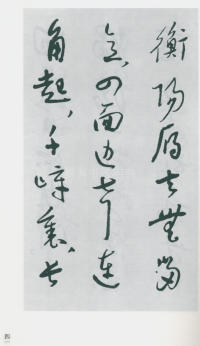 衡阳雁去无留
意。四面边声连
角起，千嶂里，长
四